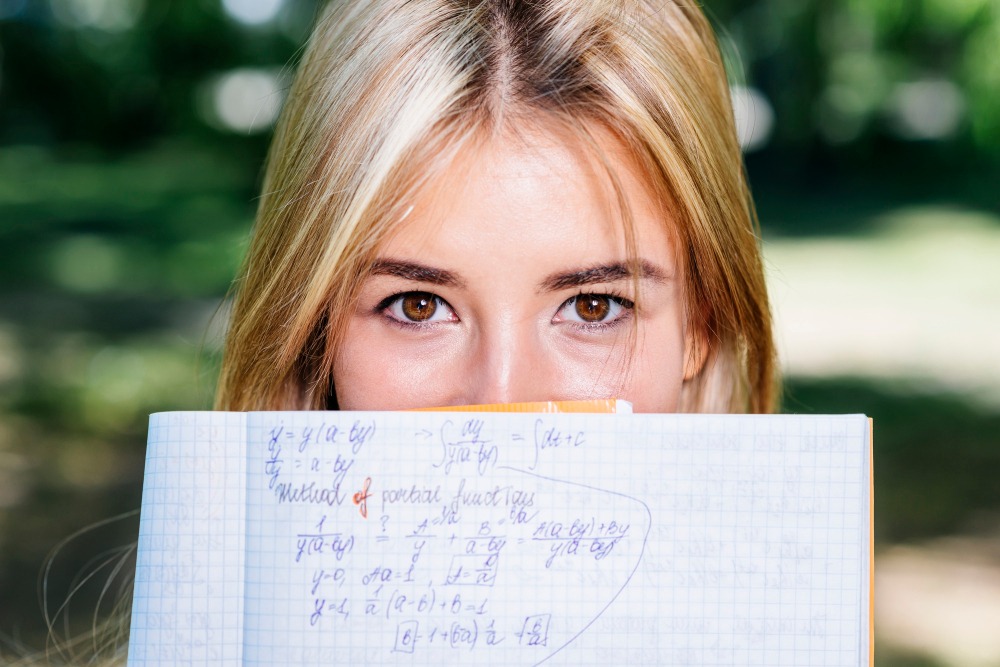 ẏ = y(a-by) → ∫ dy/y(a-by) = ∫dt+c
ẏ/y = a-by
Method of partial functions
1/y(a-by) ?= A=1/a/y + B=b/a/a-by = A(a-by)+By/y(a-by)
y=0, Aa=1, A=1/a
y=1, 1/a (a-b)+B=1
B = 1+(b/a) = b/a